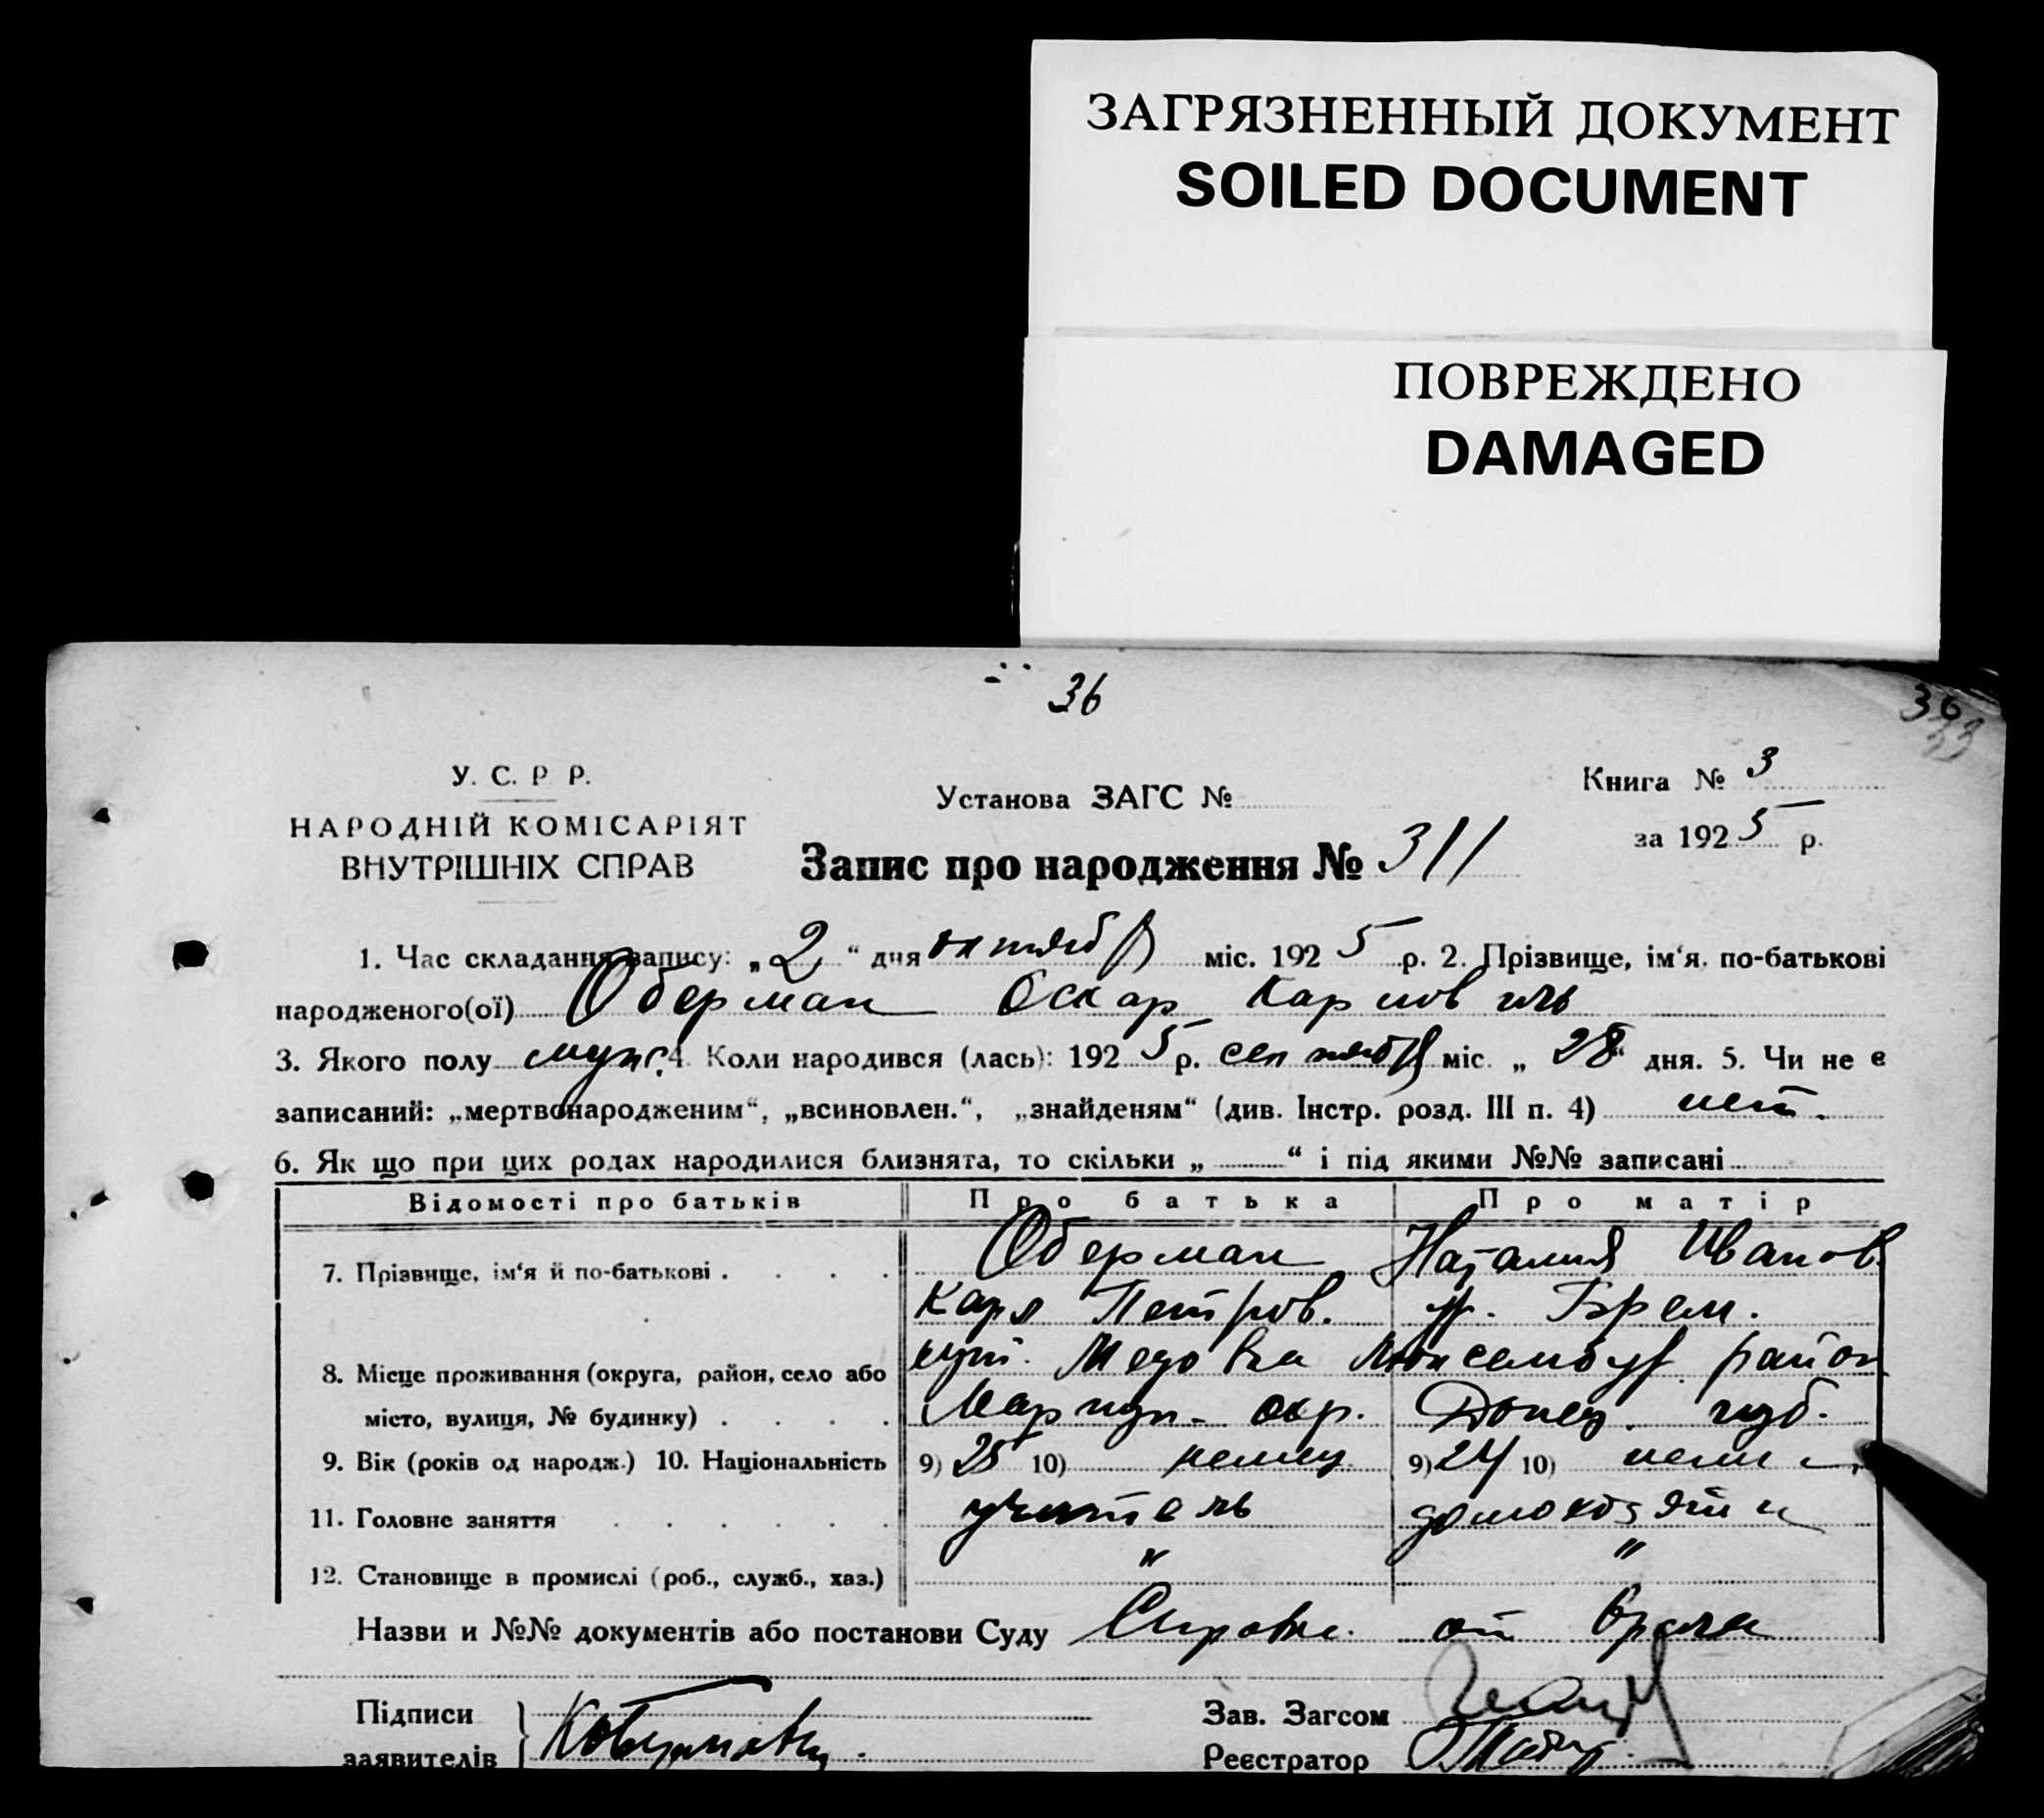 ЗАГРЯЗНЕННЫЙ ДОКУМЕНТ
SOILED DOCUMENT
ПОВРЕЖДЕНО
DAMAGED
36
36
33
У. С. Р Р.
НАРОДНІЙ КОМІСАРІЯТ
ВНУТРІШНІХ СПРАВ
Установа ЗАГС №
Книга № 3
за 1925 р.
Запис про народження № 311
1. Час складання запису: „2“ дня октября міс. 1925 р. 2. Прізвище, ім‘я. по-батькові
народженого(ої) Оберман Оскар Карлович
3. Якого полу муж. 4. Коли народився (лась): 1925 р. сентября міс. „28“ дня. 5. Чи не є
записаний: „мертвонародженим“, „всиновлен.“, „знайденям“ (див. Інстр. розд. III п. 4) нет.
6. Як що при цих родах народилися близнята, то скільки „ “ і під якими №№ записані
Відомості про батьків Про батька Про матір
7. Прізвище, ім‘я й по-батькові . . . . Оберман Наталия Иванов.
Карл Петров.
8. Місце проживання (округа, район, село або Люксембург. район
місто, вулиця, № будинку) . . . . Мариуп. окр. Донец. губ.
9. Вік (років од народж.) 10. Національність 9) 25 10) немец 9) 24 10) немк
11. Головне заняття . . . . . . учитель домохозяйк
12. Становище в промислі (роб., служб., хаз.) " "
Назви и №№ документів або постанови Суду Справка от врача
Підписи
заявителів
Зав. Загсом
Реєстратор